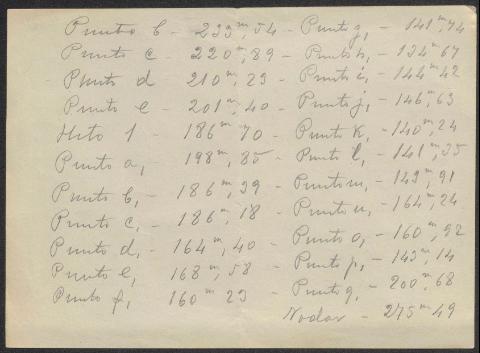 Punto b - 233m,54 - Punto g, - 141m,74
Punto c - 220m,89 - Punto h, - 134m,67
Punto d 210m,23 - Punto i, - 144m,42
Punto e - 201m,40 - Punto j, - 146m,63
Hito 1 - 186m,70 - Punto k, - 140m,24
Punto a, - 198m,85 - Punto l, - 141m,35
Punto b, - 186m,39 - Punto m, - 143m,91
Punto c, - 186m,18 - Punto n, - 164m,24
Punto d, - 164m,40 - Punto o, - 160m,92
Punto e, - 168m,58 - Punto p, - 143m,14
Punto f, 160m 23 - Punto q, - 200m,68
Nodar - 275m 49